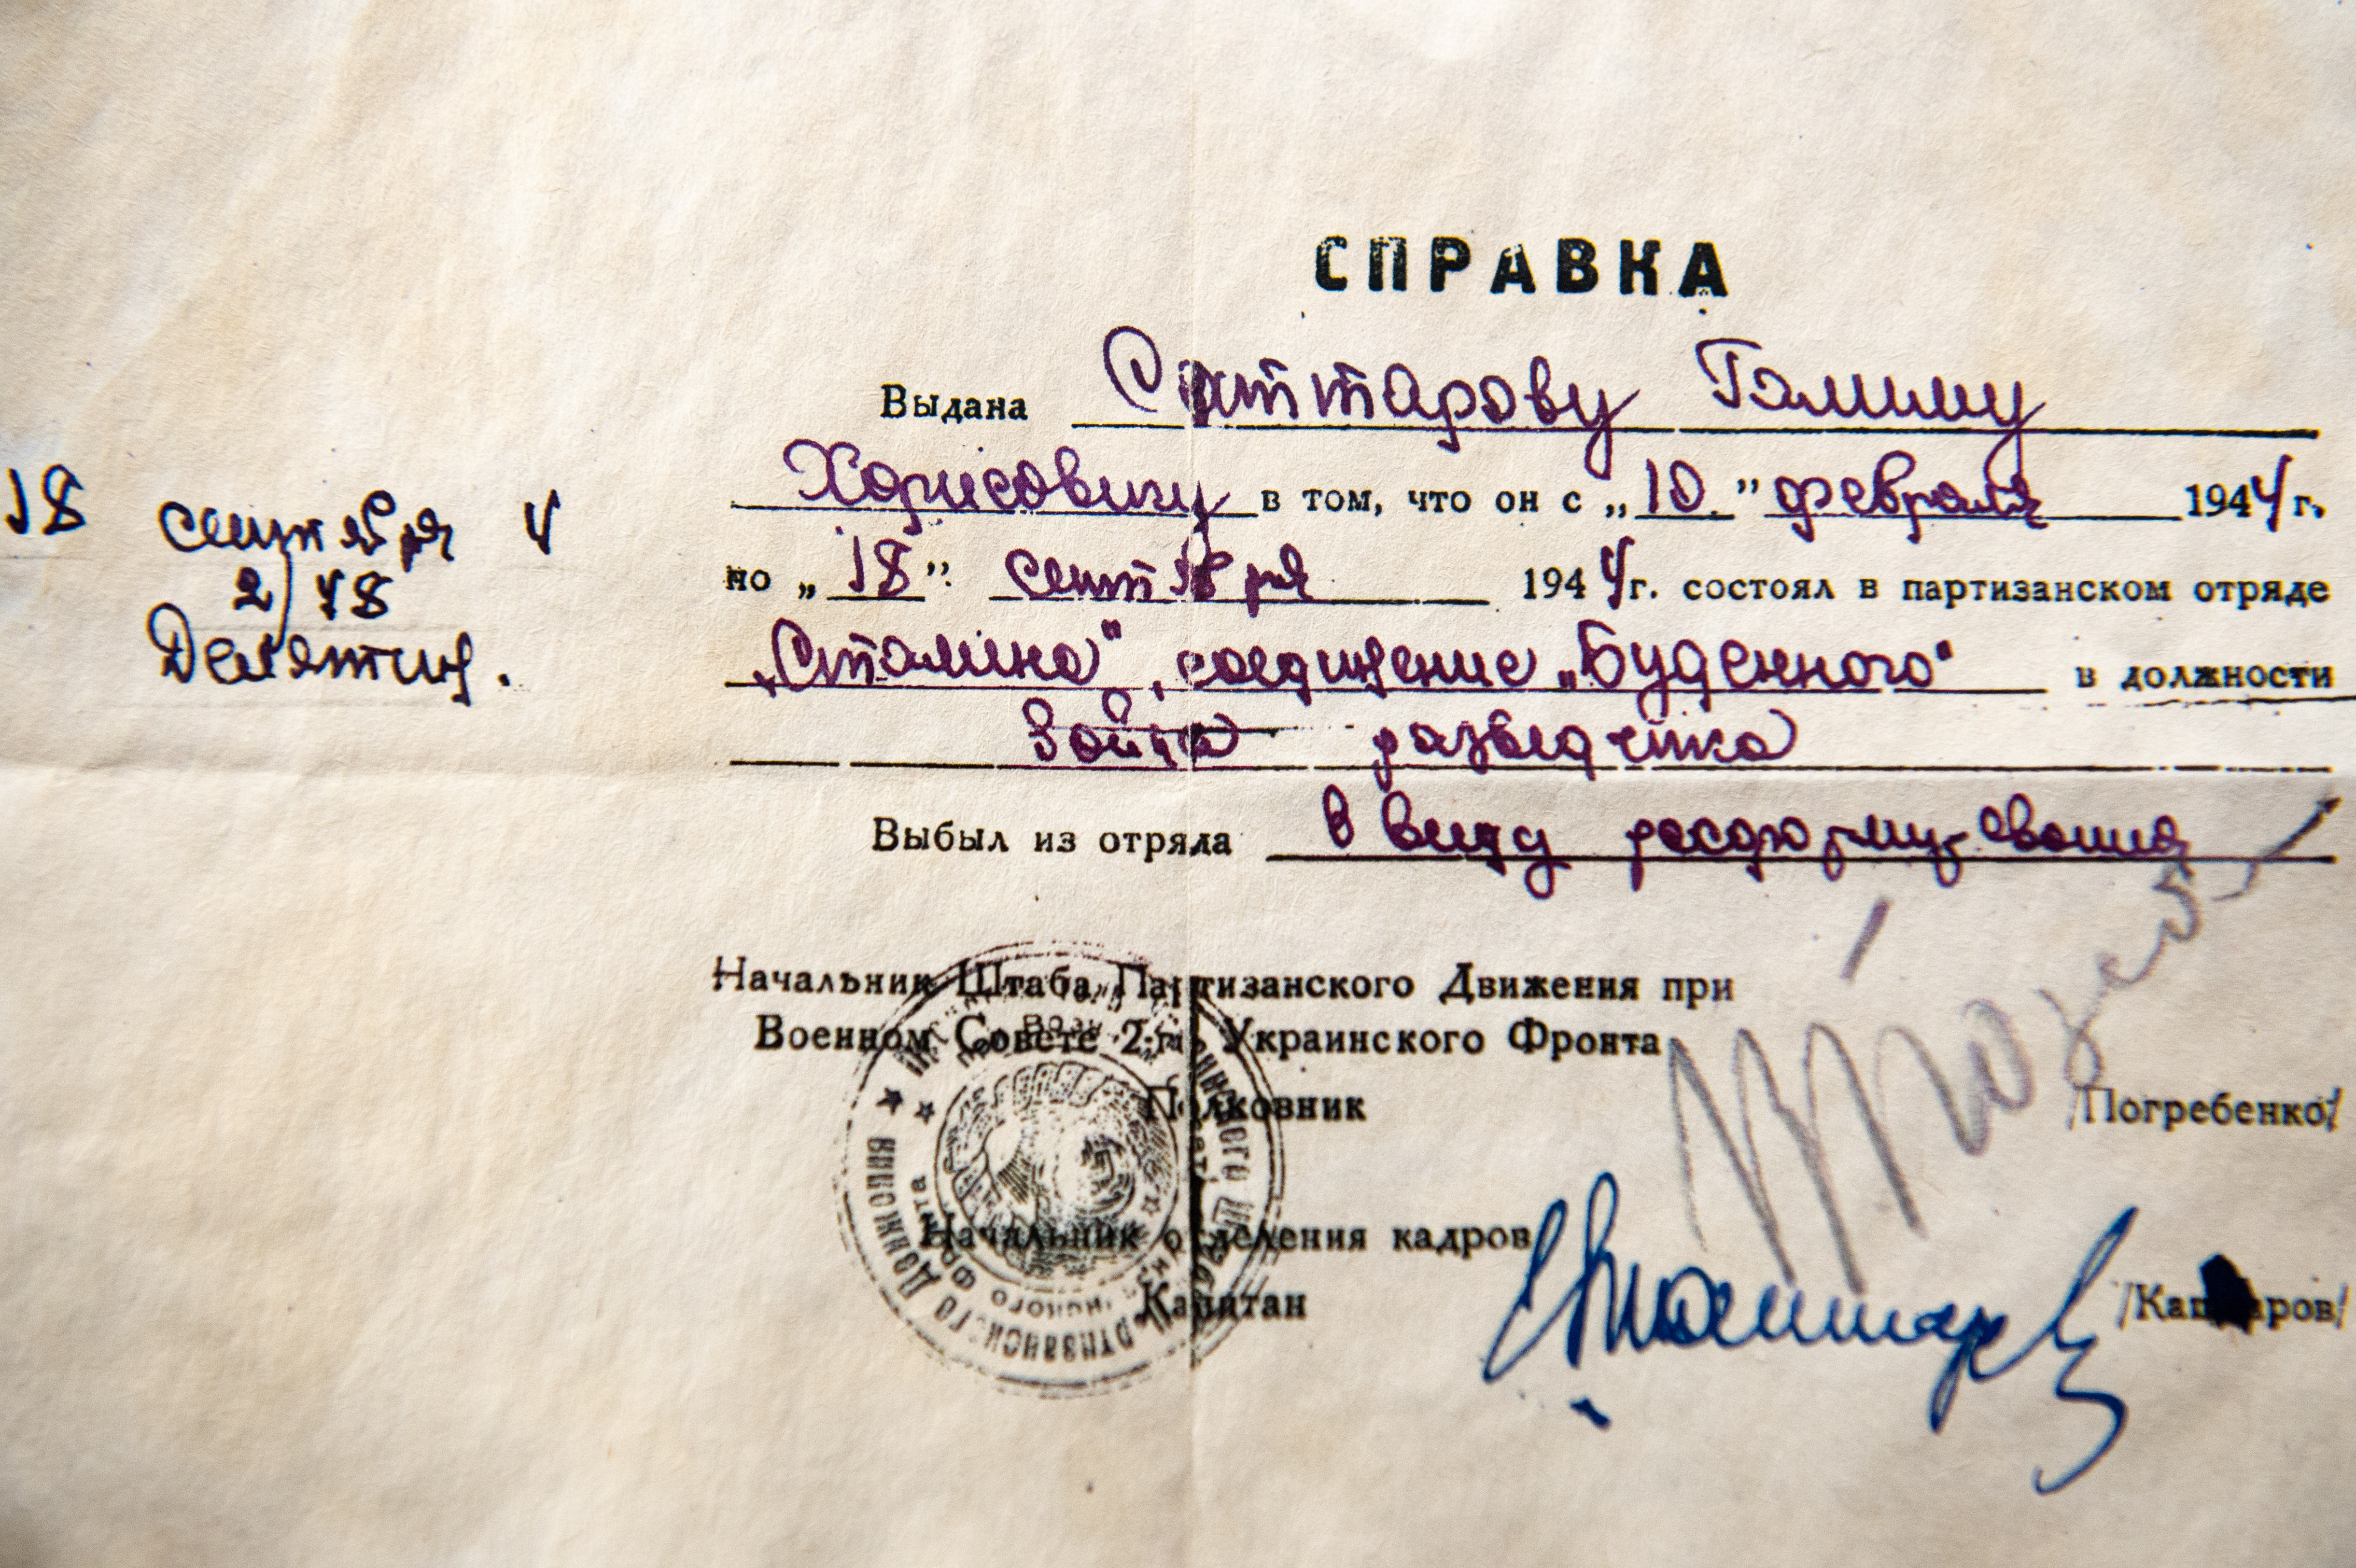 СПРАВКА
Выдана Саттарову Галину
Харисовичу в том, что он с „10.” февраля 1944 г.
по „18” сентября 1944 г. состоял в партизанском отряде
„Сталина”, соединение „Буденного” в должности
бойца разведчика
Выбыл из отряда в виду расформирования
18 сентября 4
2/48
Делятин.
Начальник Штаба Партизанского Движения при
Военном Совете 2-го Украинского Фронта
Полковник /Погребенко/
Начальник отделения кадров
Капитан